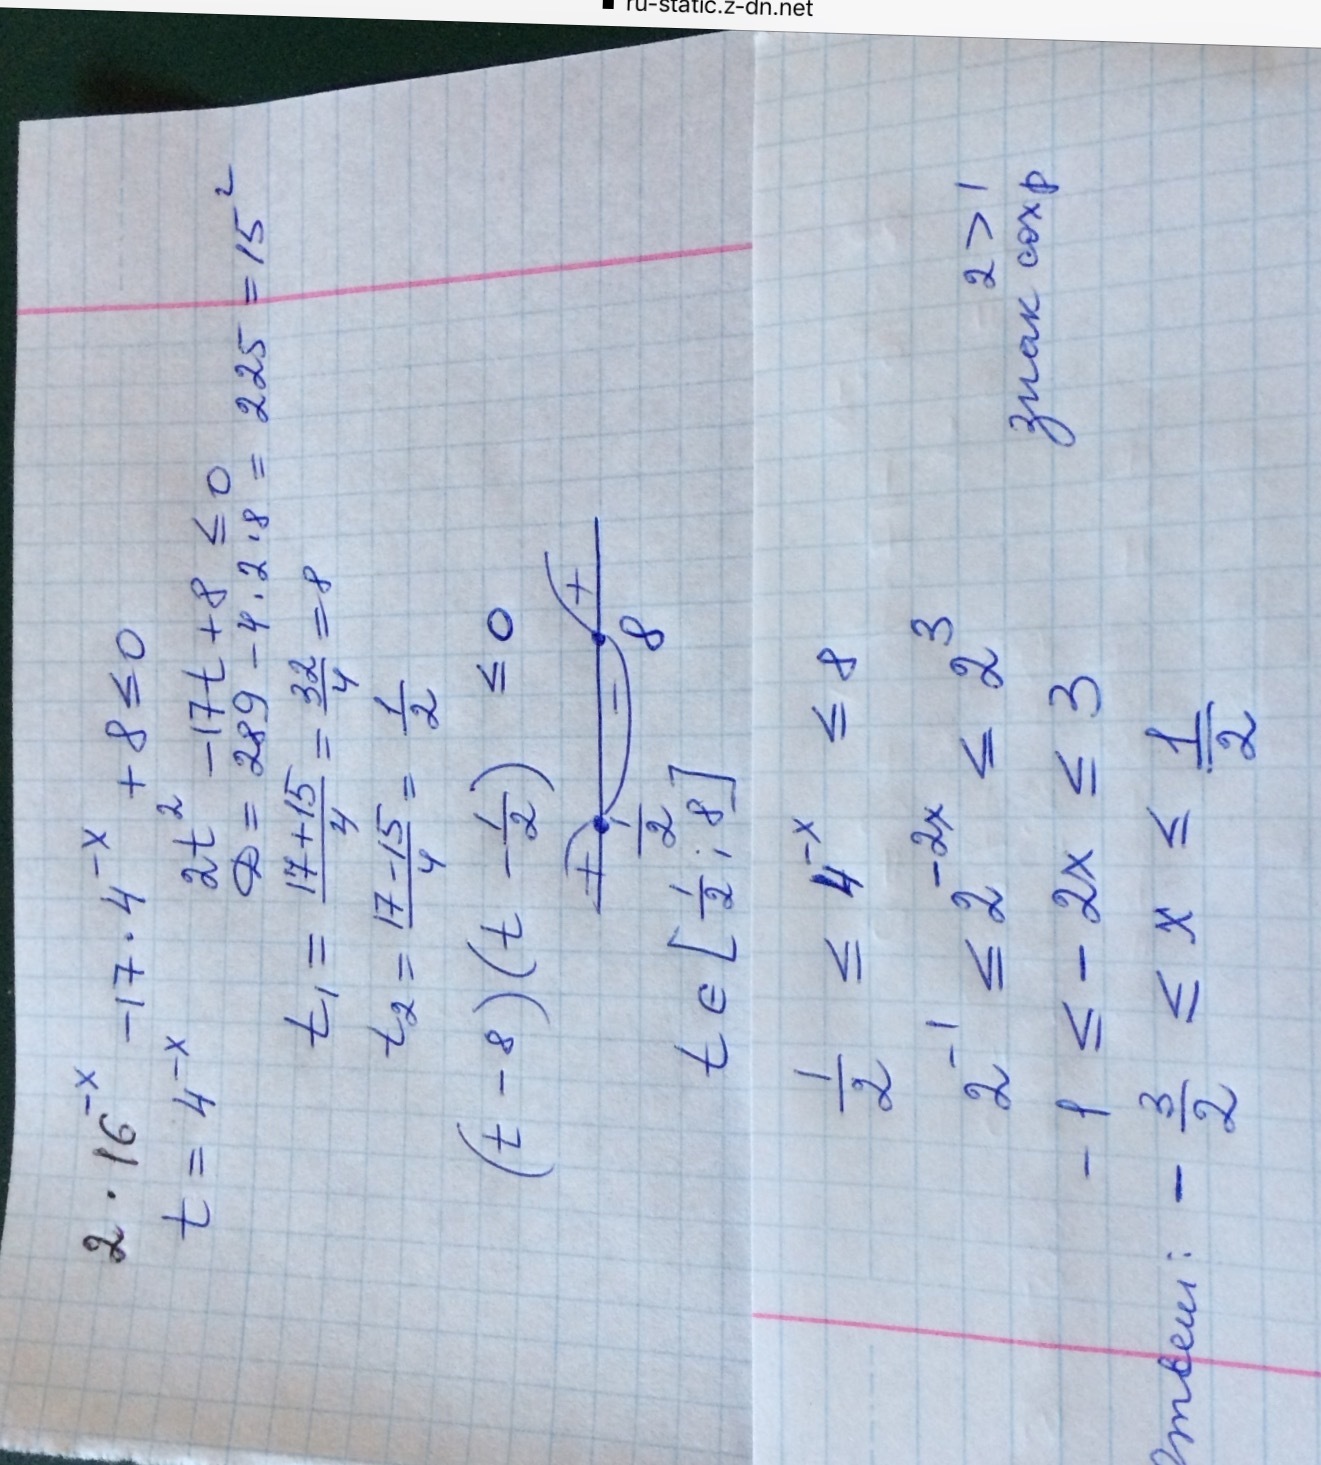 ru-static.z-dn.net
2 · 16^{-x} - 17 · 4^{-x} + 8 ≤ 0
t = 4^{-x}
2t² - 17t + 8 ≤ 0
D = 289 - 4 · 2 · 8 = 225 = 15²
t₁ = \frac{17+15}{4} = \frac{32}{4} = 8
t₂ = \frac{17-15}{4} = \frac{1}{2}
(t - 8)(t - \frac{1}{2}) ≤ 0
+ - +
\frac{1}{2} 8
t ∈ [\frac{1}{2}; 8]
\frac{1}{2} ≤ 4^{-x} ≤ 8
2^{-1} ≤ 2^{-2x} ≤ 2^3
2 > 1
знак сохр
-1 ≤ -2x ≤ 3
Ответ: -\frac{3}{2} ≤ x ≤ \frac{1}{2}